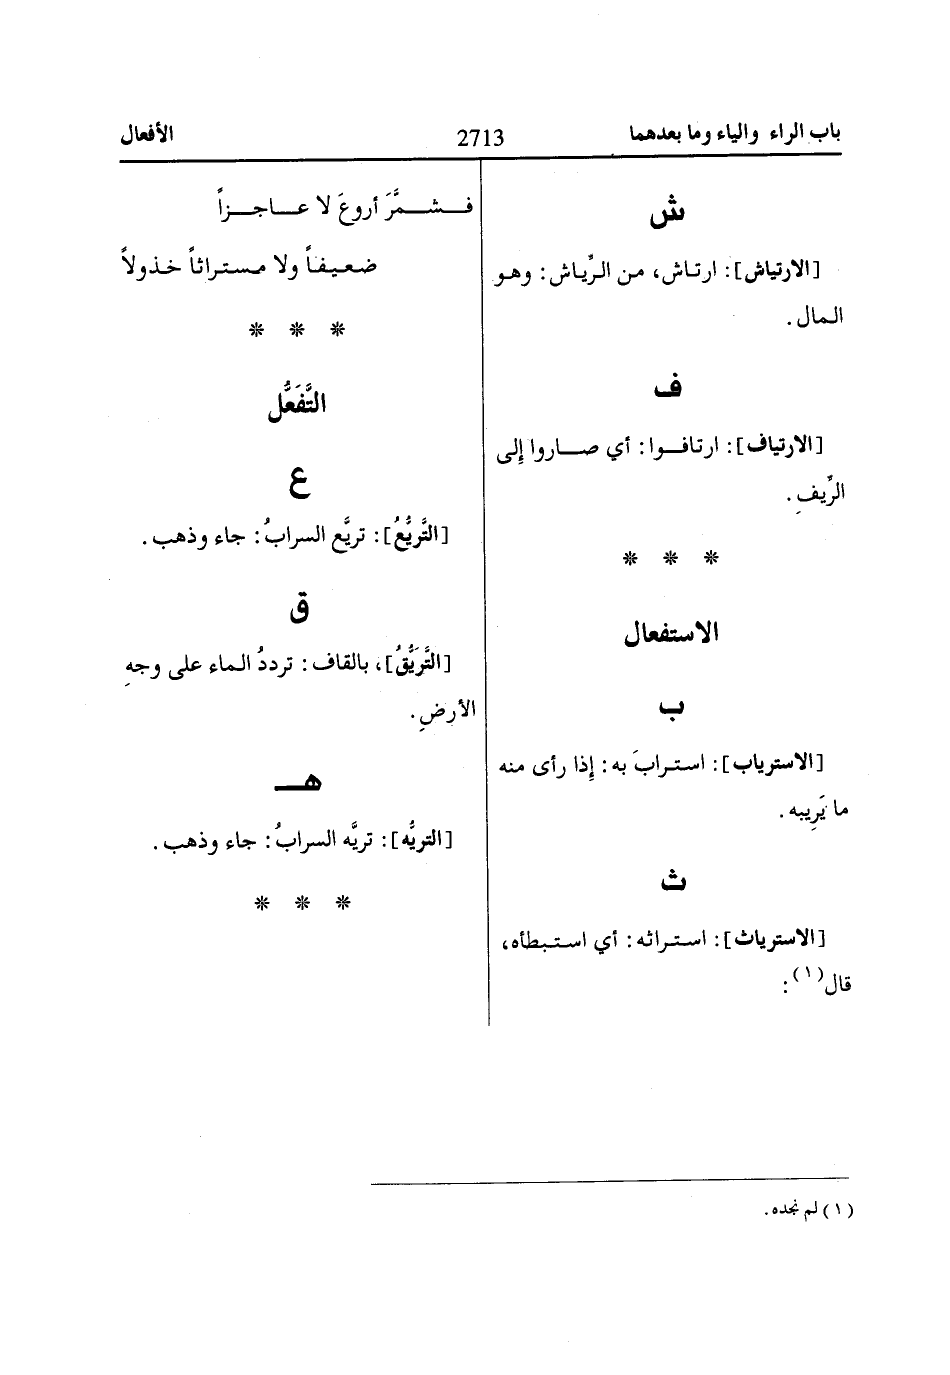 باب الراء والياء وما بعدهما
2713
الأفعال
ش
[الارتياش]: ارتاش، من الرِّياش: وهو
المال.
ف
[الارتياف]: ارتافوا: أي صاروا إِلى
الرِّيفِ.
* * *
الاستفعال
ب
[الاسترياب]: استرابَ به: إِذا رأى منه
ما يَرِيبه.
ث
[الاسترياث]: استراثه: أي استبطأه،
قال(١):
فشمَّرَ أروعَ لا عاجزاً
ضعيفاً ولا مستراثاً خذولاً
* * *
التَّفَعُّل
ع
[التَّريُّعُ]: تريَّع السرابُ: جاء وذهب.
ق
[التَّرَيُّقُ]، بالقاف: ترددُ الماء على وجهِ
الأرضِ.
هـ
[التريُّه]: تريَّه السرابُ: جاء وذهب.
* * *
(١) لم نجده.